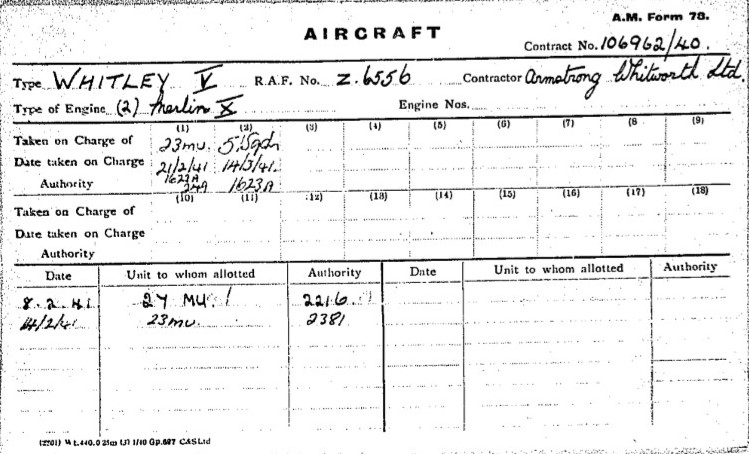 A.M. Form 78.
AIRCRAFT
Contract No. 106962/40.
Type WHITLEY V R.A.F. No. Z.6556 Contractor Armstrong Whitworth Ltd.
Type of Engine (2) Merlin X Engine Nos.
(1) (2) (3) (4) (5) (6) (7) (8 (9)
Taken on Charge of 23mu. 51Sqdn
Date taken on Charge 21/2/41 14/3/41.
Authority 1623A 1623A
(10) (11) (12) (13) (14) (15) (16) (17) (18)
Taken on Charge of
Date taken on Charge
Authority
Date Unit to whom allotted Authority Date Unit to whom allotted Authority
8.2.41 27 MU. 2216
14/2/41 23mu. 2381